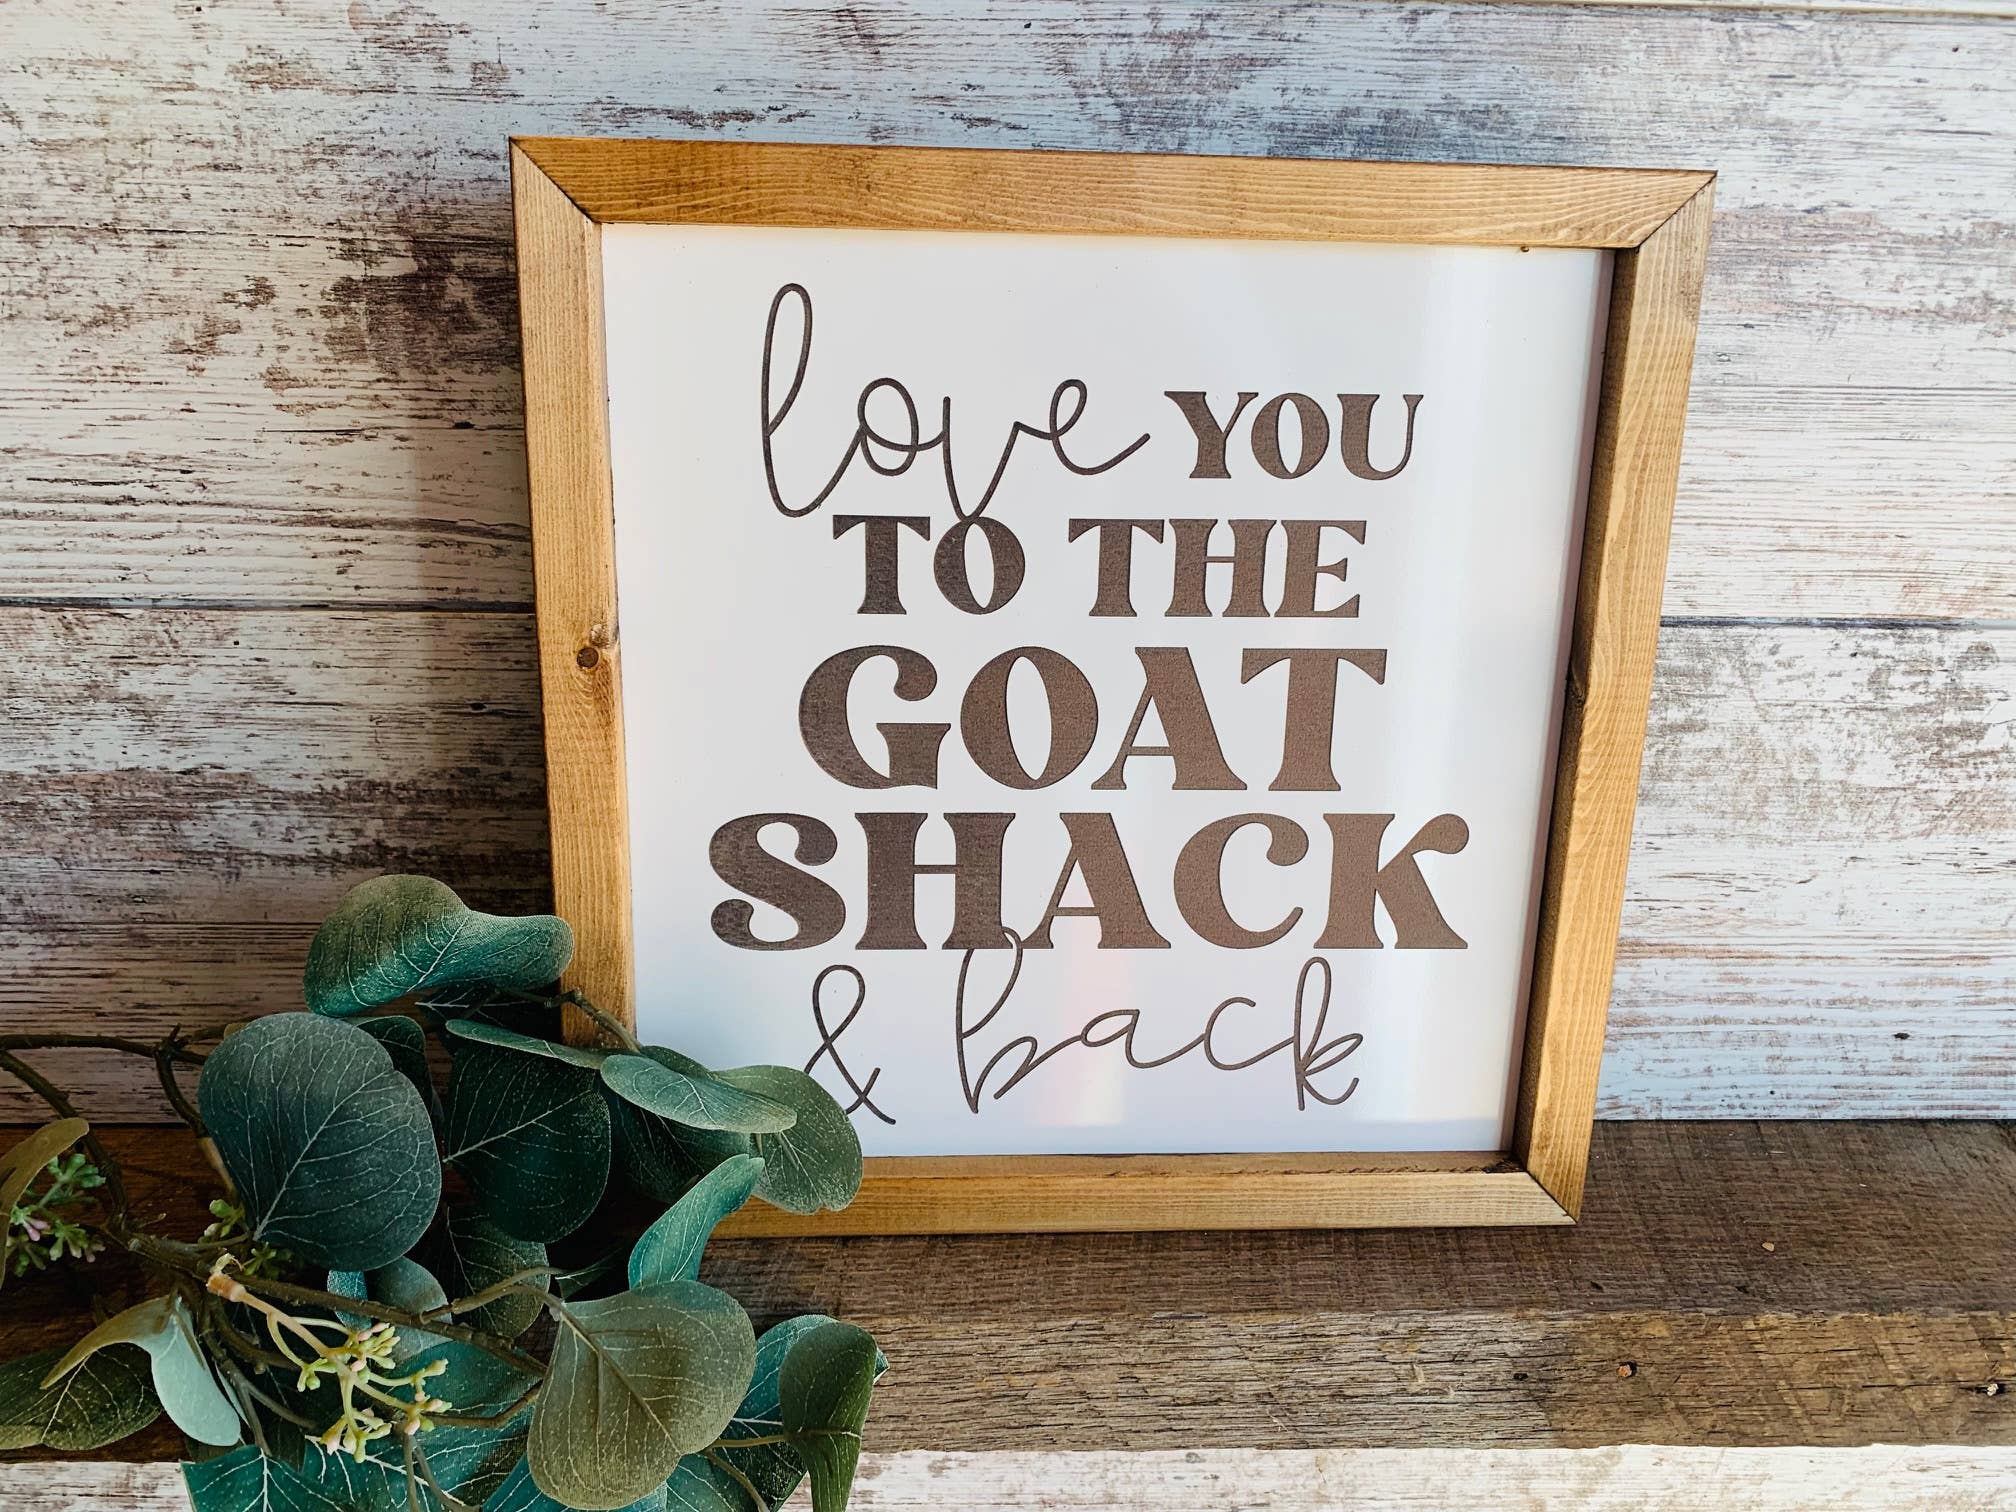 love YOU
TO THE
GOAT
SHACK
& back